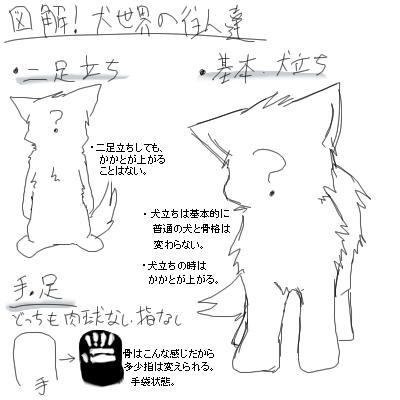 図解!犬世界の住人達
・二足立ち
・基本、犬立ち
?
?
・二足立ちしても、
かかとが上がる
ことはない。
・犬立ちは基本的に
普通の犬と骨格は
変わらない。
・犬立ちの時は
かかとが上がる。
手・足
どっちも肉球なし、指なし
手
骨はこんな感じだから
多少指は変えられる。
手袋状態。